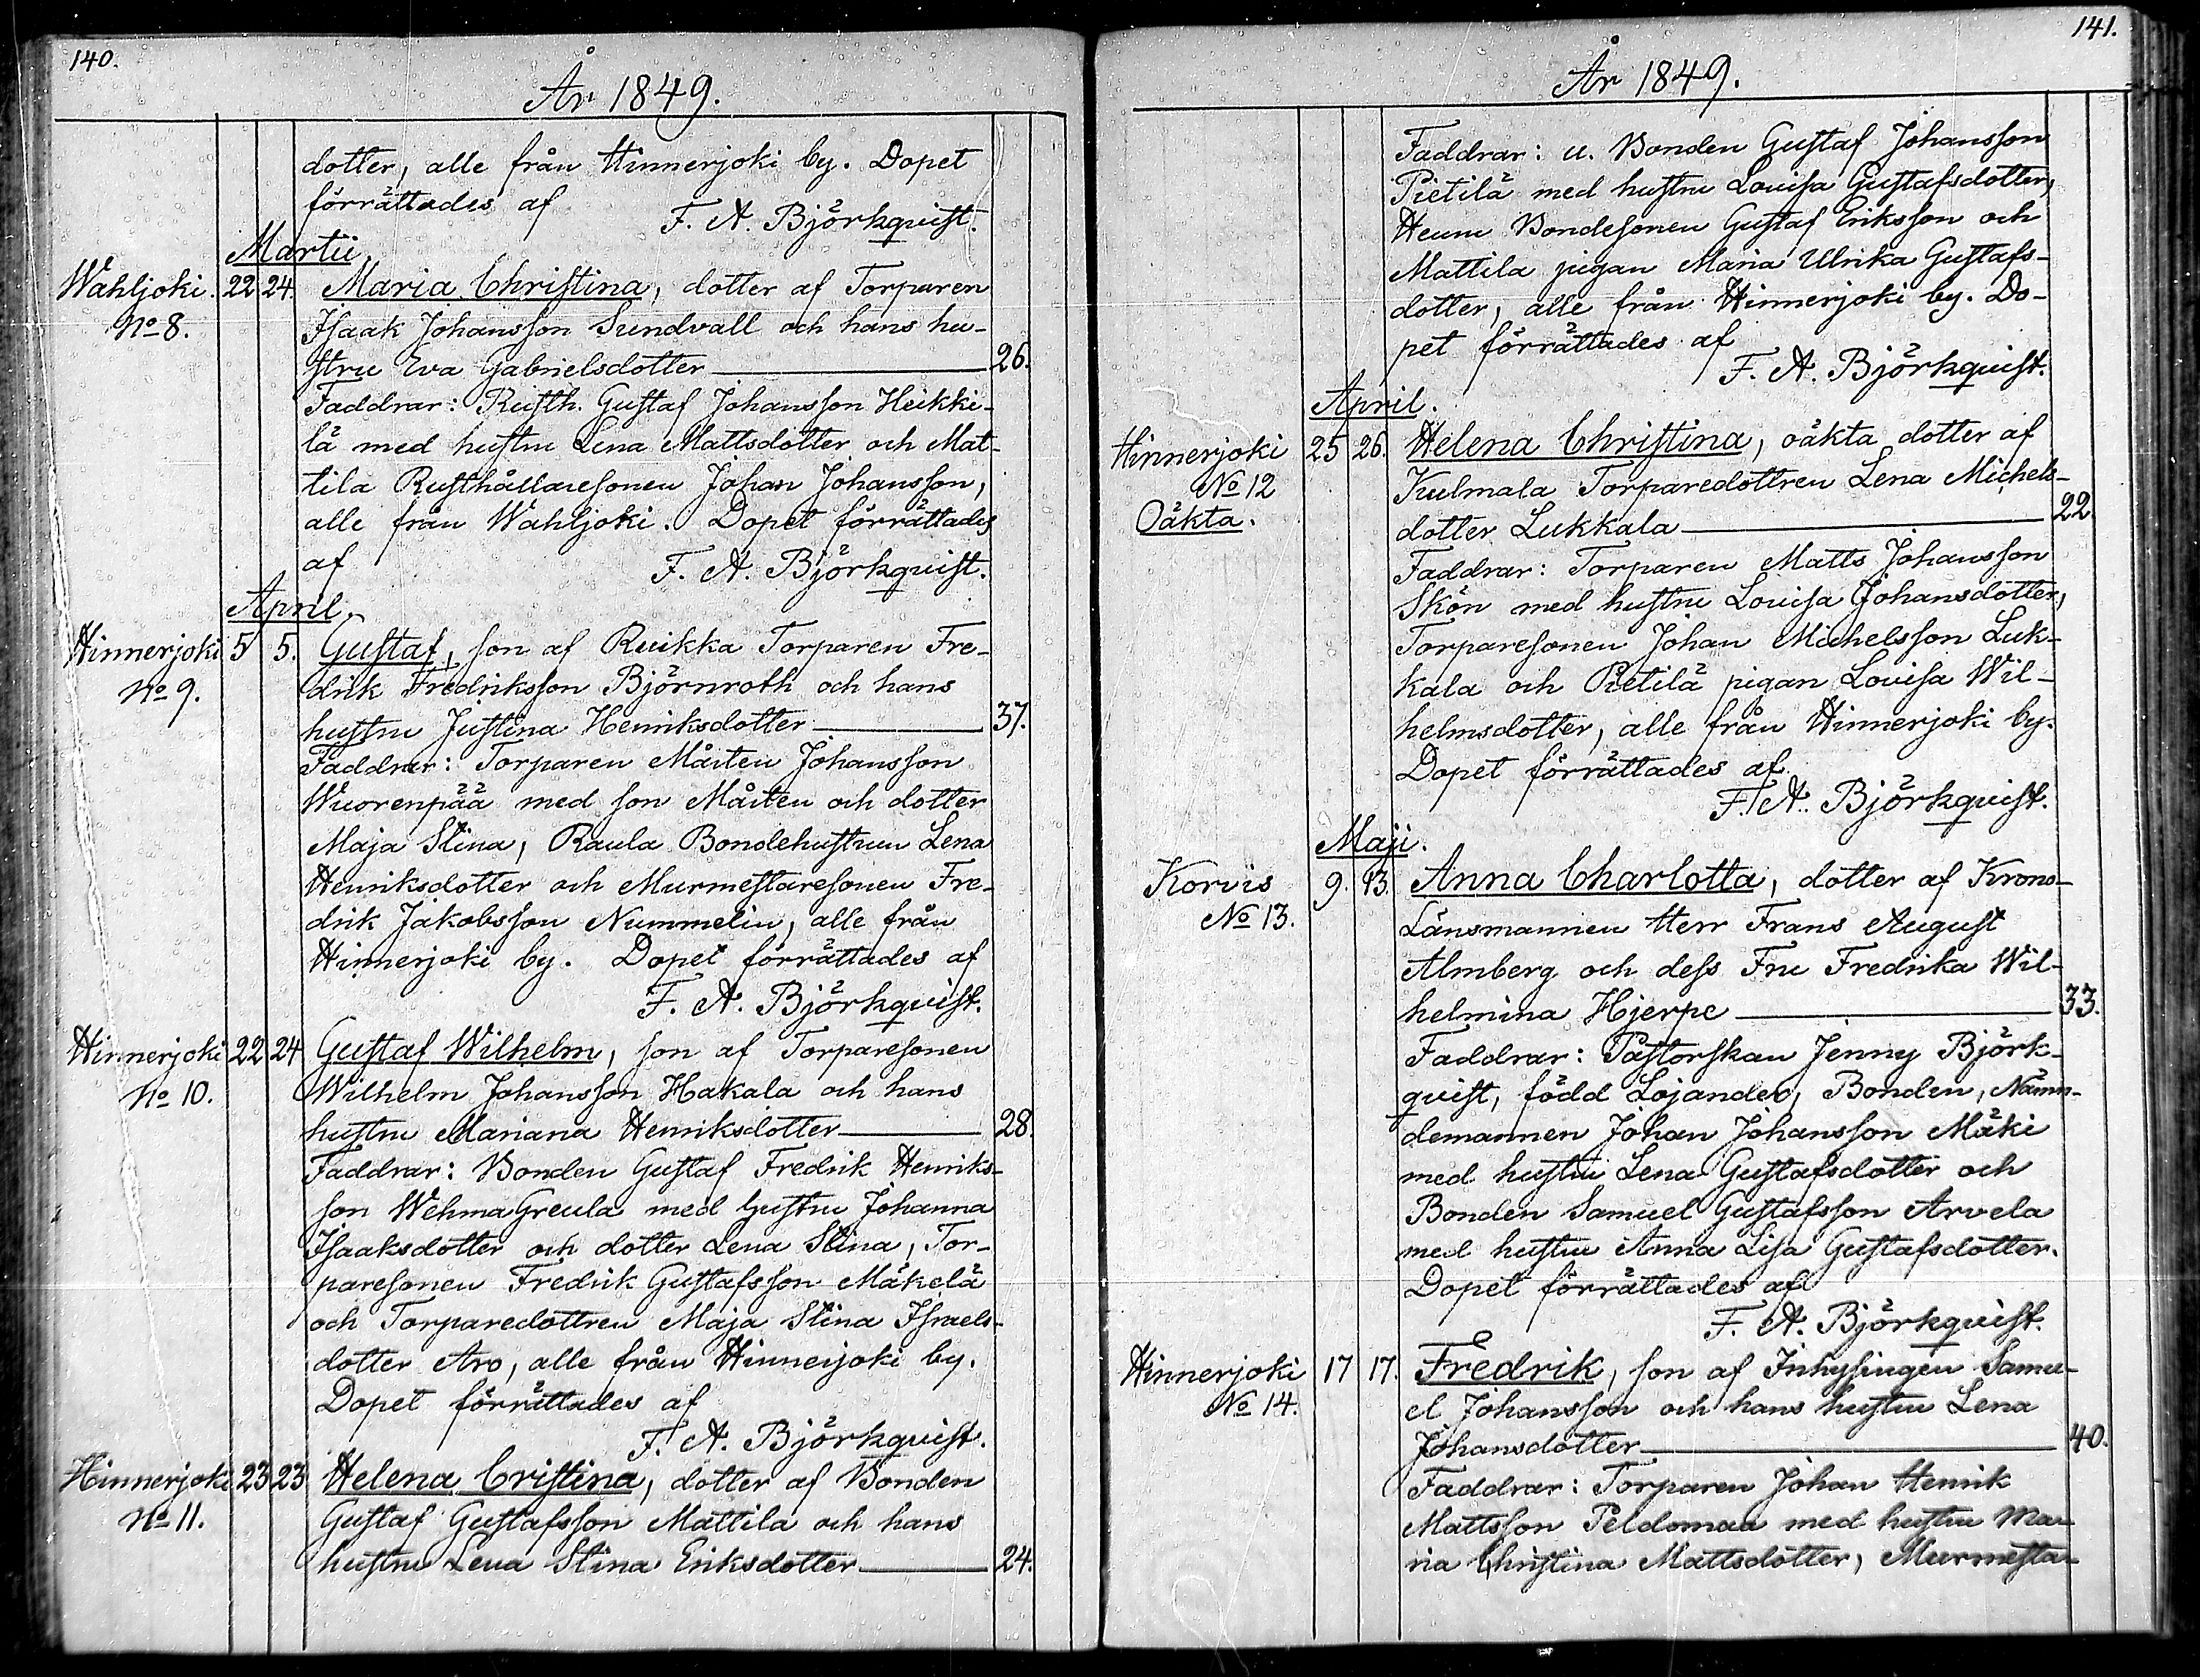 140.
År 1849.
dotter, alle från Hinnerjoki by. Dopet
förrättades af
F. A. Björkquist.
Martii
Wahljoki. 22 24. Maria Christina, dotter af Torparen
No 8. Isaak Johansson Sundvall och hans hu-
stru Eva Gabrielsdotter 26.
Faddrar: Rusth. Gustaf Johansson Heikki-
lä med hustru Lena Mattsdotter och Mat-
tila Rusthållaresonen Johan Johansson,
alle från Wahljoki. Dopet förrättades
af F. A. Björkquist.
April.
Hinnerjoki 5 5. Gustaf, son af Ruikka Torparen Fre-
No 9. drik Fredriksson Björnroth och hans
hustru Justina Henriksdotter 37.
Faddrar: Torparen Mårten Johansson
Wuorenpää med son Mårten och dotter
Maja Stina, Raula Bondehustrun Lena
Henriksdotter och Murmestaresonen Fre-
drik Jakobsson Nummelin, alle från
Hinnerjoki by. Dopet förrättades af
F. A. Björkquist.
Hinnerjoki 22 24 Gustaf Wilhelm, son af Torparesonen
No 10. Wilhelm Johansson Hakala och hans
hustru Mariana Henriksdotter 28.
Faddrar: Bonden Gustaf Fredrik Henriks-
son Wehma Greula med hustru Johanna
Isaaksdotter och dotter Lena Stina, Tor-
paresonen Fredrik Gustafsson Mäkelä
och Torparedottren Maja Stina Israels-
dotter Aro, alle från Hinnerjoki by.
Dopet förrättades af
F. A. Björkquist.
Hinnerjoki 23 23 Helena Cristina, dotter af Bonden
No 11. Gustaf Gustafsson Mattila och hans
hustru Lena Stina Eriksdotter 24.
141.
År 1849.
Faddrar: u. Bonden Gustaf Johansson
Pietilä med hustru Lovisa Gustafsdotter,
Heunu Bondesonen Gustaf Eriksson och
Mattila pigan Maria Ulrika Gustafs-
dotter, alle från Hinnerjoki by. Do-
pet förrättades af
F. A. Björkquist.
April.
Hinnerjoki 25 26. Helena Christina, oäkta dotter af
No 12 Kulmala Torparedottren Lena Michels-
Oäkta. dotter Lukkala 22.
Faddrar: Torparen Matts Johansson
Skön med hustru Lovisa Johansdotter,
Torparesonen Johan Michelsson Luk-
kala och Pietilä pigan Lovisa Wil-
helmsdotter, alle från Hinnerjoki by.
Dopet förrättades af
F. A. Björkquist.
Maji.
Korvis 9. 13. Anna Charlotta, dotter af Krono-
No 13. Länsmannen Herr Frans August
Almberg och dess Fru Fredrika Wil-
helmina Hjerpe 33.
Faddrar: Pastorskan Jenny Björk-
quist, född Lojander, Bonden, Nämn-
demannen Johan Johansson Mäki
med hustru Lena Gustafsdotter och
Bonden Samuel Gustafsson Arvela
med hustru Anna Lisa Gustafsdotter.
Dopet förrättades af
F. A. Björkquist.
Hinnerjoki 17 17. Fredrik, son af Inhysingen Samu-
No 14. el Johansson och hans hustru Lena
Johansdotter 40.
Faddrar: Torparen Johan Henrik
Mattsson Peldomaa med hustru Ma-
ria Christina Mattsdotter, Murmesta-